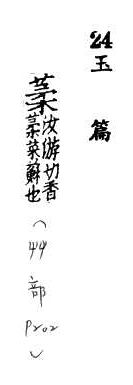 24
玉篇
葇
汝游切香
葇菜蘇也
(艸部 P202)